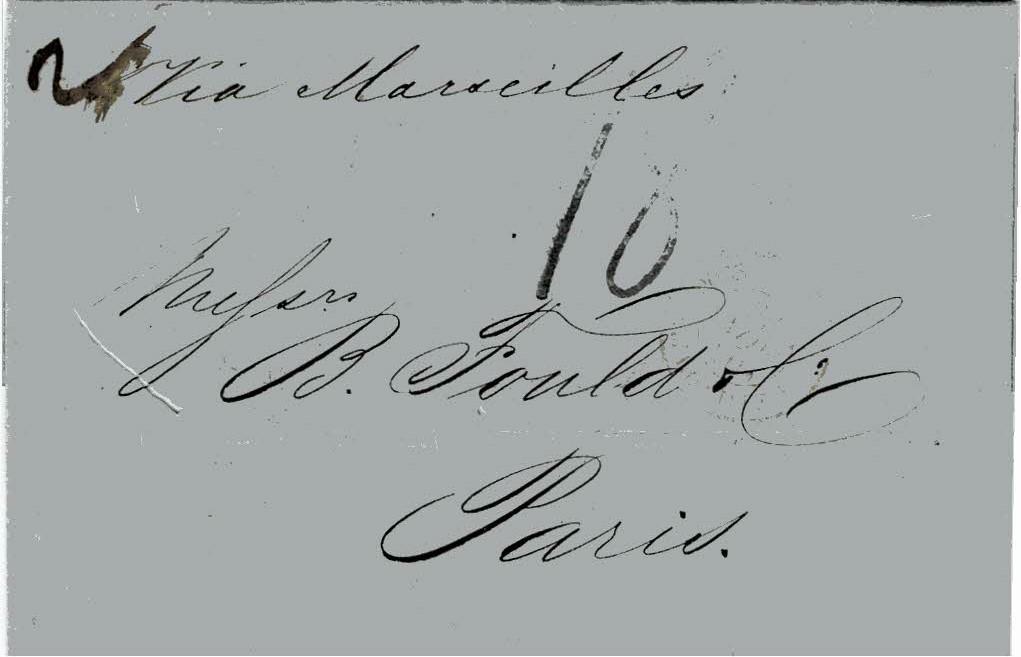 Via Marseilles
10
Messrs
B. Fould & Co
Paris.